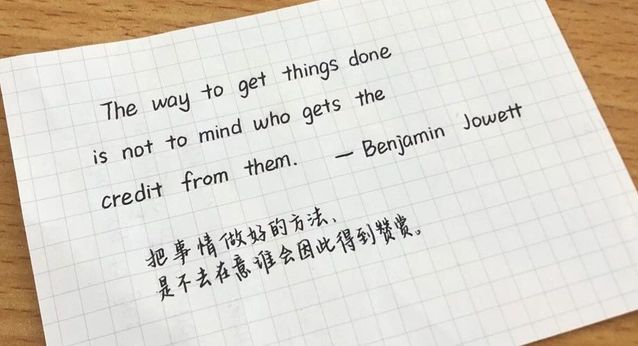 The way to get things done
is not to mind who gets the
credit from them. — Benjamin Jowett
把事情做好的方法、
是不去在意谁会因此得到赞赏。